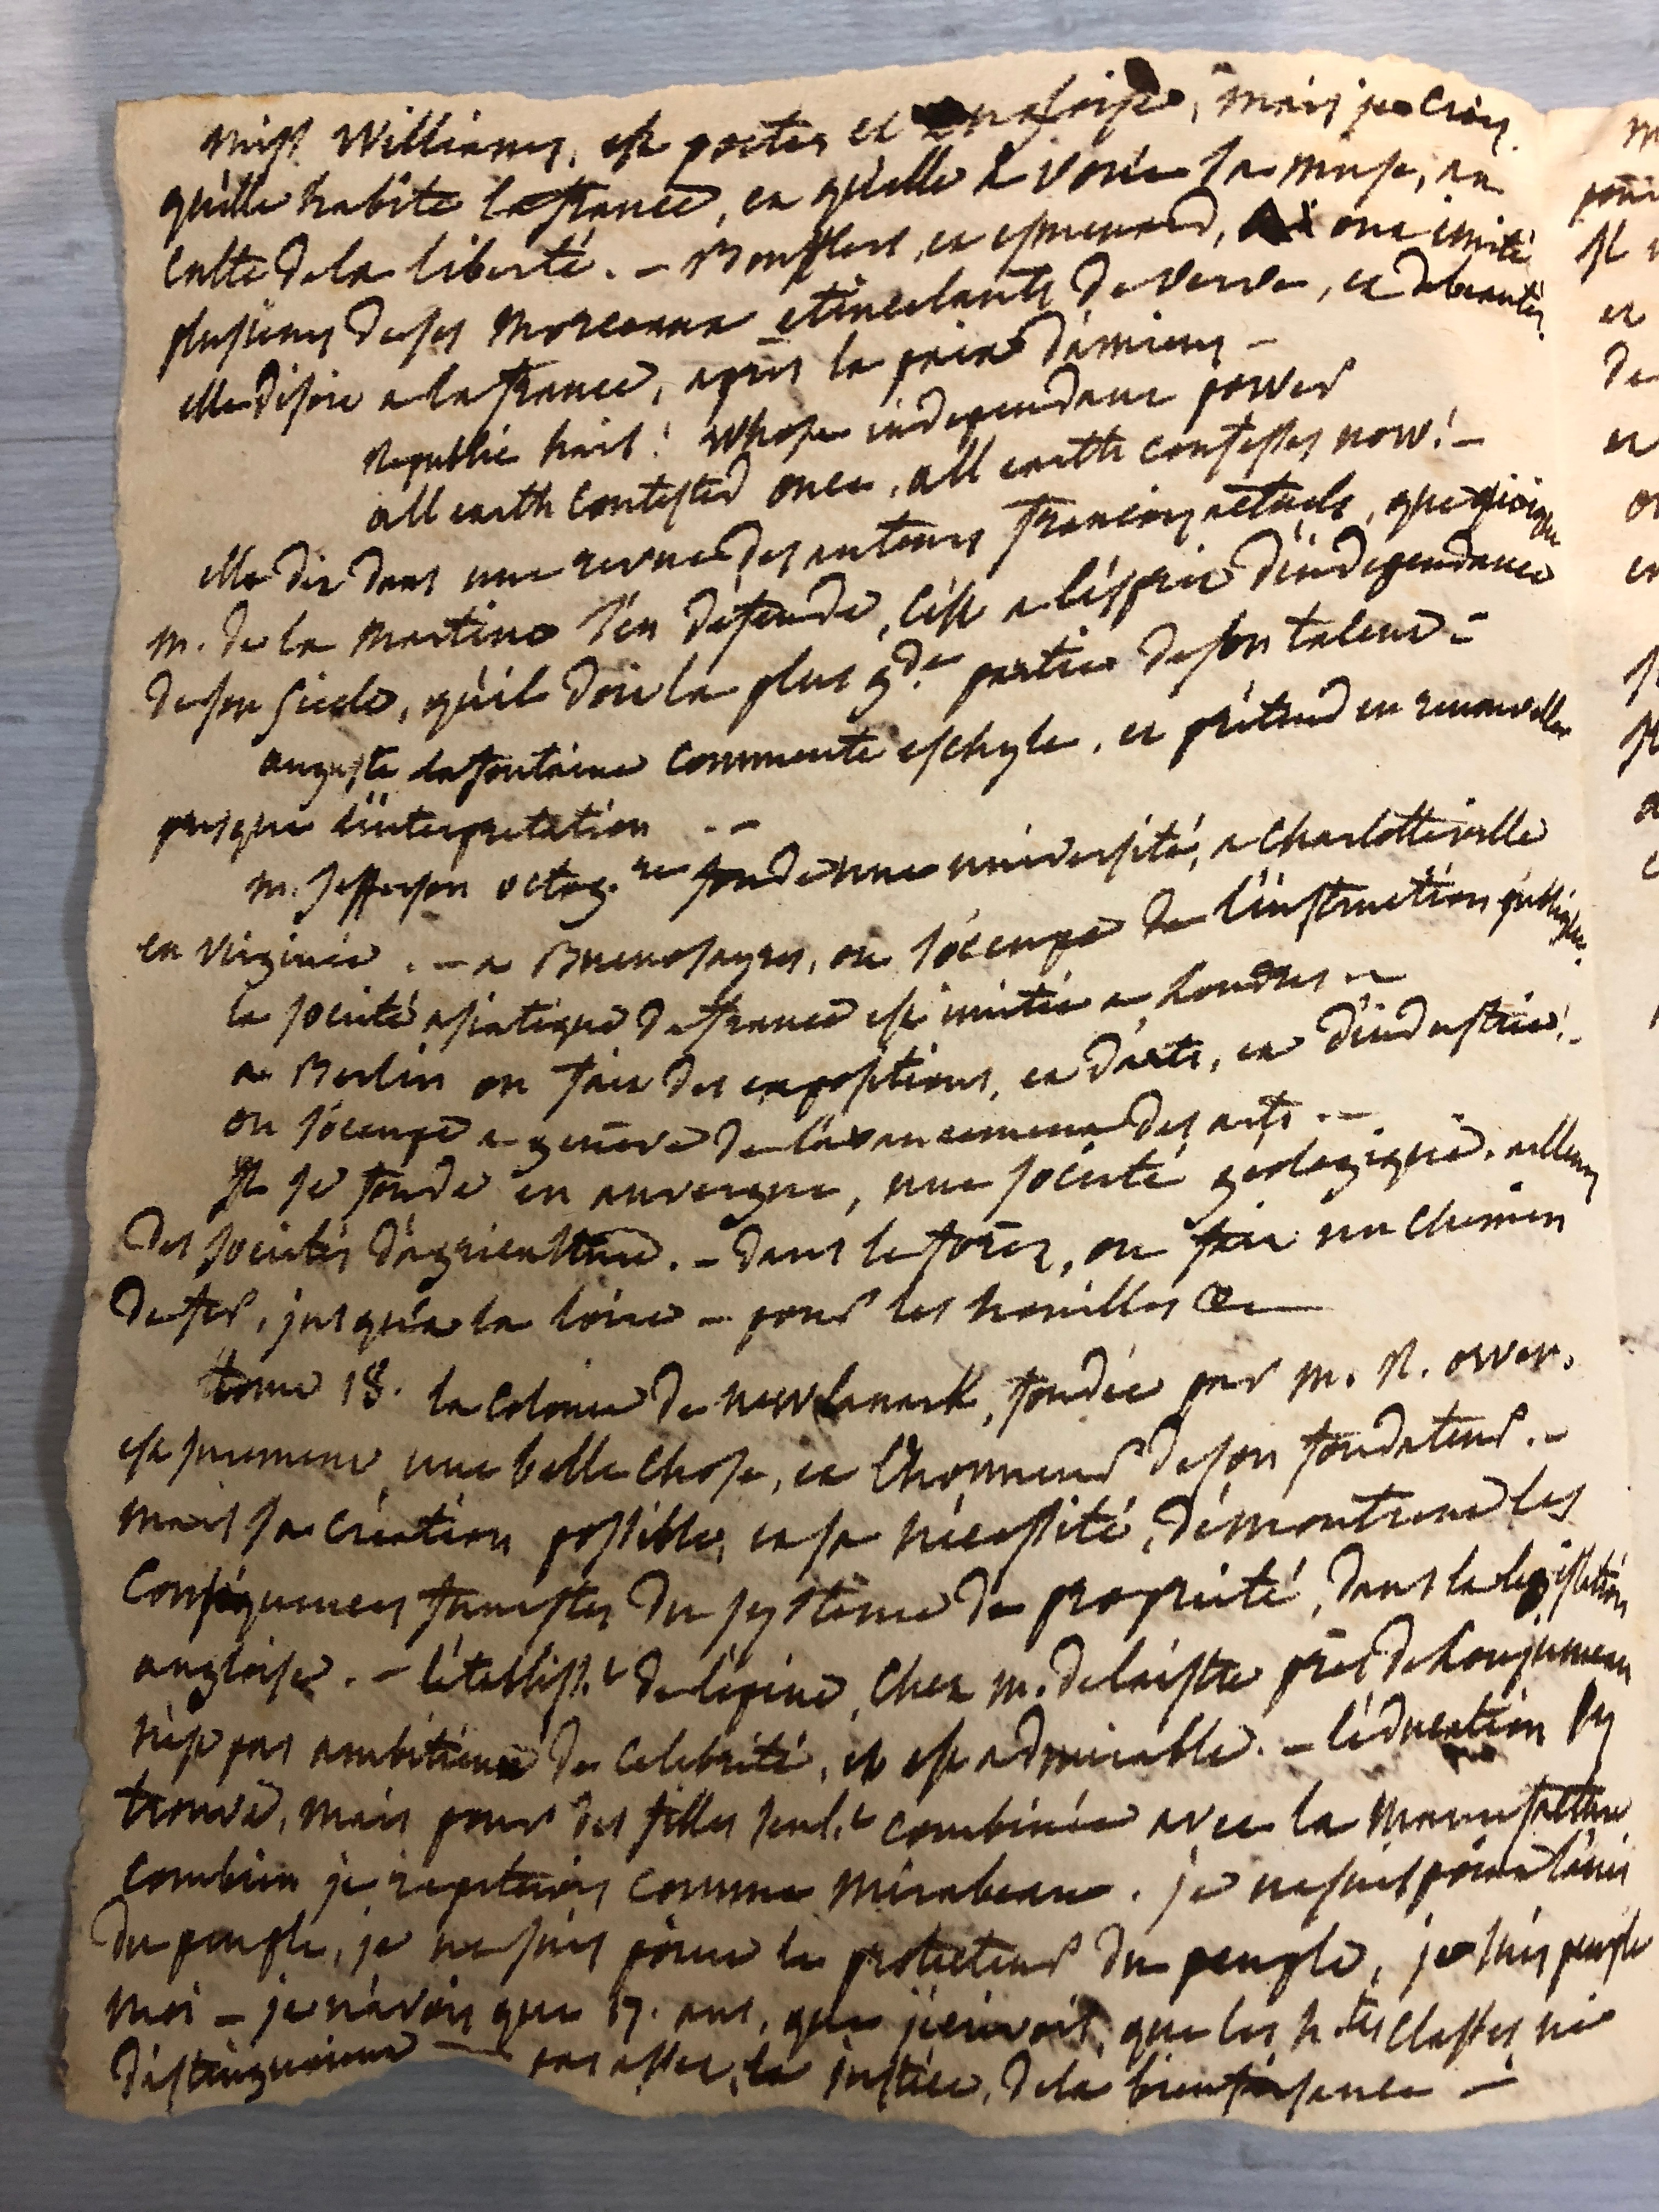 miss Williams, est poete, et anglaise, mais je crois
qu'elle habite la france, et qu'elle a vouée sa muse, au
culte de la liberté. – Boufflers, et esmenard, ont imité
plusieurs de ses morceaux etincelants de verve, et de beautés
elle disoit a la france, après la paix d'amiens –
republic hail! whose independant power
all earth contested once, all earth confesses now! –
elle dit dans une revue des auteurs françois actuels, que quoique
m. de la martine s'en défende, c'est a l'ésprit d'indépendance
de son siecle, qu'il doit la plus gde partie de son talent –
auguste lafontaine commente eschyle, et prétend en renouveller
presque l'interprétation . –
m. Jefferson octog.re fonde une université, a Charlotteville
en virginie . – a Buenosayres, on s'occupe de l'instruction publique.
la société asiatique de france est imitée a Londres –
a Berlin on fait des expositions, et d'arts, et d'industrie. –
on s'occupe a genève de l'avancement des arts . –
Il se fonde en auvergne, une société geologique. ailleurs
des sociétés d'agriculture. – dans le forez, on fait un chemin
de fer, jusqu'a la Loire – pour les houilles &c
tome 18. la colonie de newlanark, fondée par m. R. owen.
est surement une belle chose, et l'honneur de son fondateur. –
mais sa création possible, et sa nécessité, démontrent les
conséquences funestes du systeme de propriété, dans la législation
angloise. – l'établiss.t de l'épine, chez m. delaistre près de Lonjumeau
n'est pas ambitieux de celebrité, et est admirable. – l'éducation s'y
trouve, mais pour des filles seul.t combinée avec la manufacture
combien je repeterois comme mirabeau. je ne suis point l'ami
du peuple, je ne suis point le protecteur du peuple, je suis peuple
moi – je n'avois que 17. ans, que j'écrivois, que les h.tes classes ne
distinguoient – pas assez, la justice, de la bienfaisance –